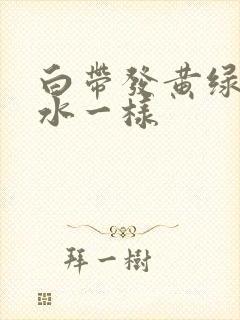 白帶發黄绿
水一樣
拜一樹